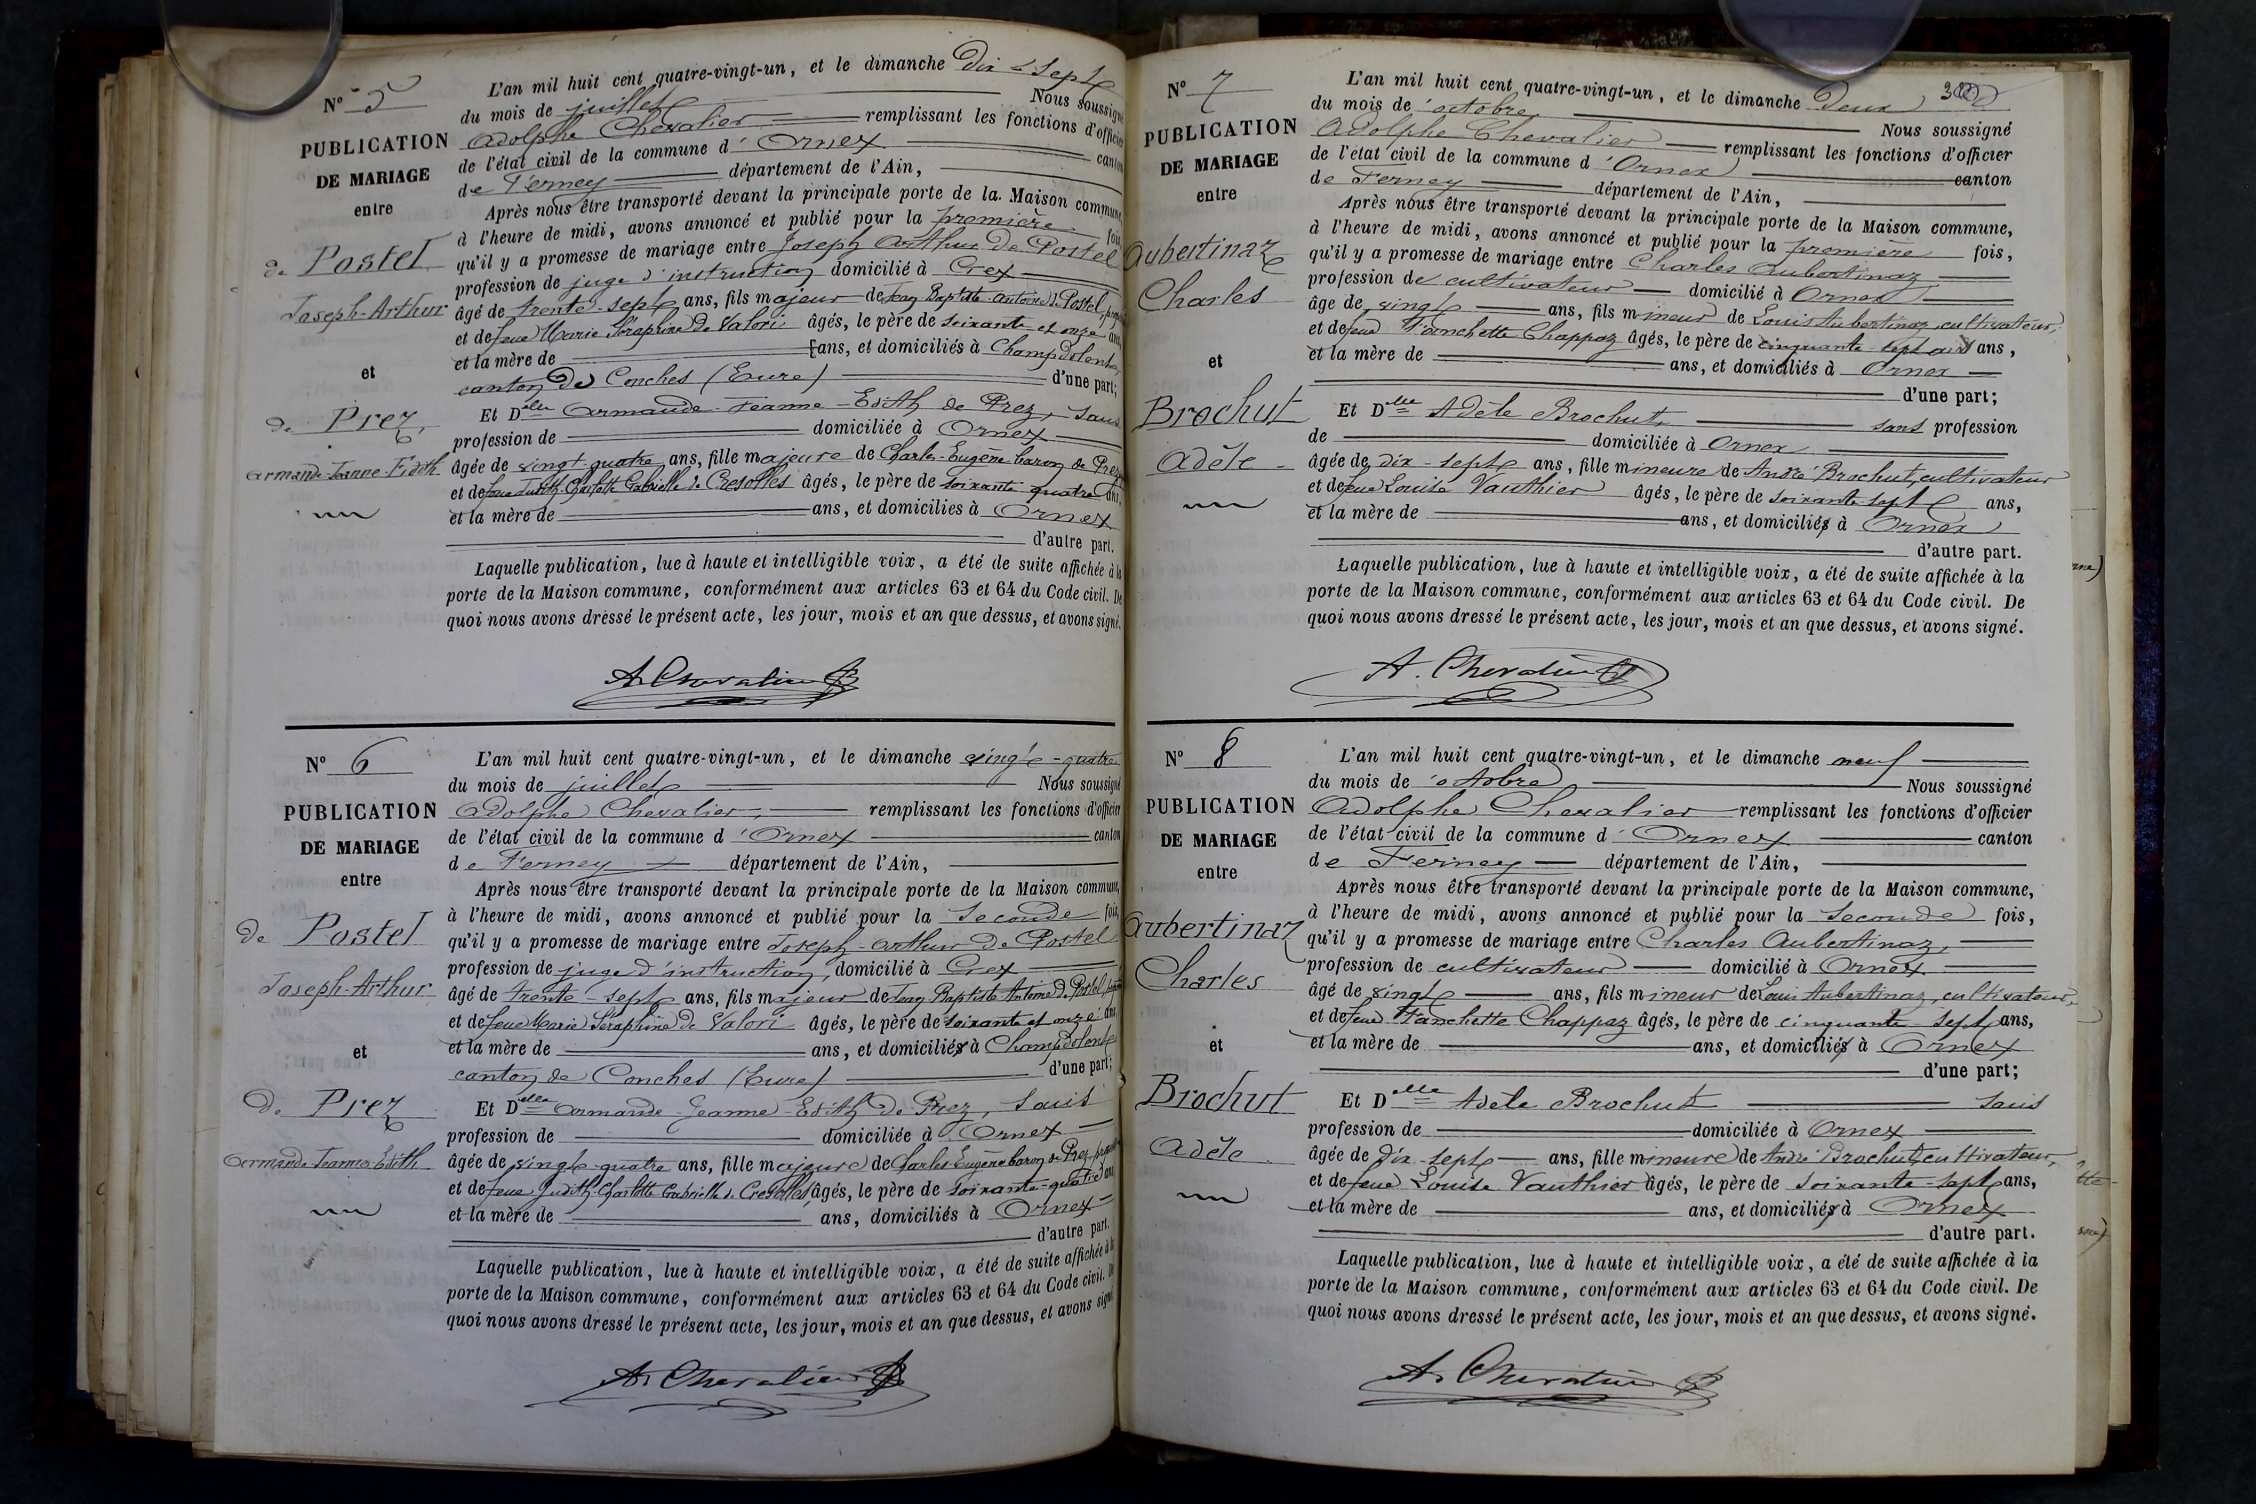 N° 5
PUBLICATION
DE MARIAGE
entre
de Postel
Joseph-Arthur
et
de Prez,
Armande-Jeanne-Edith
L'an mil huit cent quatre-vingt-un, et le dimanche dix-sept
du mois de juillet Nous soussigné
Adolphe Chevalier remplissant les fonctions d'officier
de l'état civil de la commune d'Ornex canton
de Ferney département de l'Ain,
Après nous être transporté devant la principale porte de la Maison commune,
à l'heure de midi, avons annoncé et publié pour la première fois,
qu'il y a promesse de mariage entre Joseph Arthur De Postel
profession de juge d'instruction domicilié à Gex
âgé de trente-sept ans, fils majeur de Jean Baptiste-Antoine de Postel,
et de feue Marie Séraphine De Valori âgés, le père de soixante et onze ans,
et la mère de ans, et domiciliés à Champdolent,
canton de Conches (Eure) d'une part;
Et Delle Armande-Jeanne-Edith de Prez, sans
profession de domiciliée à Ornex
âgée de vingt-quatre ans, fille majeure de Charles-Eugène baron de Prez
et de feue Judith Charlotte Gabrielle de Cresolles âgés, le père de soixante-quatre ans,
et la mère de ans, et domiciliés à Ornex
d'autre part.
Laquelle publication, lue à haute et intelligible voix, a été de suite affichée à la
porte de la Maison commune, conformément aux articles 63 et 64 du Code civil. De
quoi nous avons dressé le présent acte, les jour, mois et an que dessus, et avons signé.
A. Chevalier
N° 6
PUBLICATION
DE MARIAGE
entre
de Postel
Joseph-Arthur
et
de Prez
Armande-Jeanne-Edith
L'an mil huit cent quatre-vingt-un, et le dimanche vingt-quatre
du mois de juillet Nous soussigné
Adolphe Chevalier, remplissant les fonctions d'officier
de l'état civil de la commune d'Ornex canton
de Ferney département de l'Ain,
Après nous être transporté devant la principale porte de la Maison commune,
à l'heure de midi, avons annoncé et publié pour la seconde fois,
qu'il y a promesse de mariage entre Joseph-Arthur De Postel
profession de juge d'instruction, domicilié à Gex
âgé de trente-sept ans, fils majeur de Jean Baptiste Antoine De Postel
et de feue Marie Séraphine de Valori âgés, le père de soixante et onze ans,
et la mère de ans, et domiciliés à Champdolent
canton de Conches (Eure) d'une part;
Et Delle Armande-Jeanne-Edith De Prez, sans
profession de domiciliée à Ornex
âgée de vingt-quatre ans, fille majeure de Charles Eugène baron de Prez
et de feue Judith Charlotte Gabrielle de Cresolles, âgés, le père de soixante-quatre ans
et la mère de ans, domiciliés à Ornex
d'autre part.
Laquelle publication, lue à haute et intelligible voix, a été de suite affichée à la
porte de la Maison commune, conformément aux articles 63 et 64 du Code civil. De
quoi nous avons dressé le présent acte, les jour, mois et an que dessus, et avons signé
A. Chevalier
N° 7
PUBLICATION
DE MARIAGE
entre
Aubertinaz
Charles
et
Brochut
Adèle
L'an mil huit cent quatre-vingt-un, et le dimanche deux
du mois de octobre Nous soussigné
Adolphe Chevalier remplissant les fonctions d'officier
de l'état civil de la commune d'Ornex canton
de Ferney département de l'Ain,
Après nous être transporté devant la principale porte de la Maison commune,
à l'heure de midi, avons annoncé et publié pour la première fois,
qu'il y a promesse de mariage entre Charles Aubertinaz
profession de cultivateur domicilié à Ornex
âgé de vingt ans, fils mineur de Louis Aubertinaz, cultivateur,
et de feue Fanchette Chappaz âgés, le père de cinquante-sept ans ans,
et la mère de ans, et domiciliés à Ornex
d'une part;
Et Delle Adèle Brochut, sans profession
de domiciliée à Ornex
âgée de dix-sept ans, fille mineure de André Brochut, cultivateur
et de feue Louise Vauthier âgés, le père de soixante sept ans,
et la mère de ans, et domiciliés à Ornex
d'autre part.
Laquelle publication, lue à haute et intelligible voix, a été de suite affichée à la
porte de la Maison commune, conformément aux articles 63 et 64 du Code civil. De
quoi nous avons dressé le présent acte, les jour, mois et an que dessus, et avons signé.
A. Chevalier
N° 8
PUBLICATION
DE MARIAGE
entre
Aubertinaz
Charles
et
Brochut
Adèle
L'an mil huit cent quatre-vingt-un, et le dimanche neuf
du mois de octobre Nous soussigné
Adolphe Chevalier remplissant les fonctions d'officier
de l'état civil de la commune d'Ornex canton
de Ferney département de l'Ain,
Après nous être transporté devant la principale porte de la Maison commune,
à l'heure de midi, avons annoncé et publié pour la seconde fois,
qu'il y a promesse de mariage entre Charles Aubertinaz,
profession de cultivateur domicilié à Ornex
âgé de vingt ans, fils mineur de Louis Aubertinaz, cultivateur,
et de feue Fanchette Chappaz âgés, le père de cinquante-sept ans,
et la mère de ans, et domiciliés à Ornex
d'une part;
Et Delle Adèle Brochut sans
profession de domiciliée à Ornex
âgée de dix-sept ans, fille mineure de André Brochut, cultivateur,
et de feue Louise Vauthier âgés, le père de soixante-sept ans,
et la mère de ans, et domiciliés à Ornex
d'autre part.
Laquelle publication, lue à haute et intelligible voix, a été de suite affichée à la
porte de la Maison commune, conformément aux articles 63 et 64 du Code civil. De
quoi nous avons dressé le présent acte, les jour, mois et an que dessus, et avons signé.
A. Chevalier